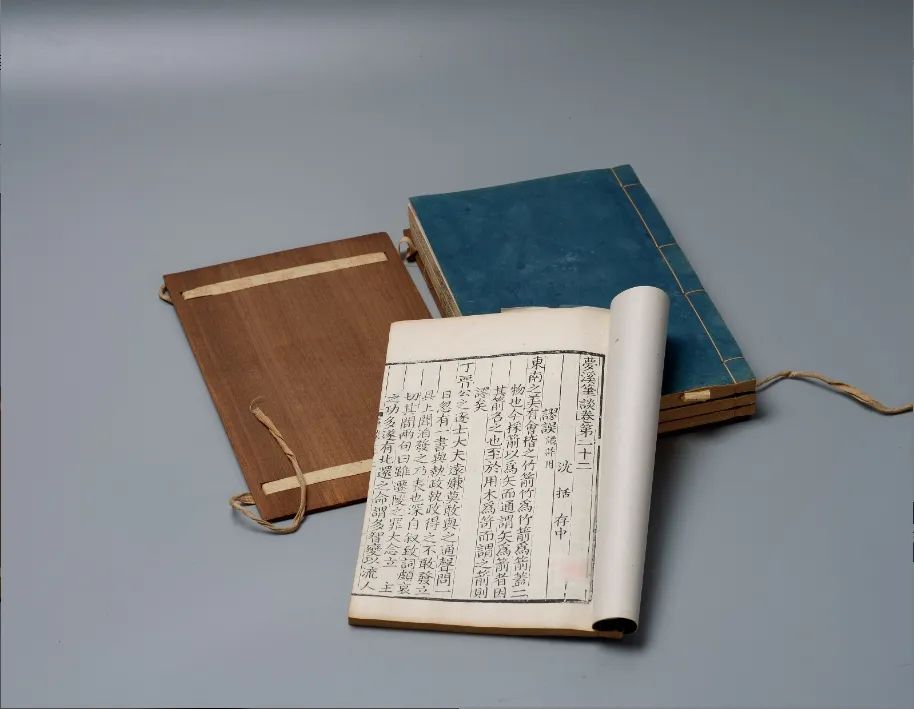 夢溪筆談卷第二十二
沈 括 存中
謬誤 譎詐附
東南之美有會稽之竹箭竹爲竹箭爲箭蓋二
物也今採箭以爲矢而通謂矢爲箭者因
其箭名之也至於用木爲笴而謂之箭則
謬矣
丁晉公之逐士大夫遠嫌莫敢與之通聲問一
日忽有一書與執政執政得之不敢發立
具上聞洎發之乃表也深自叙致詞頗哀
切其間兩句曰雖遷陵之罪大念立 主
之功多遂有北還之命謂多智變以流人